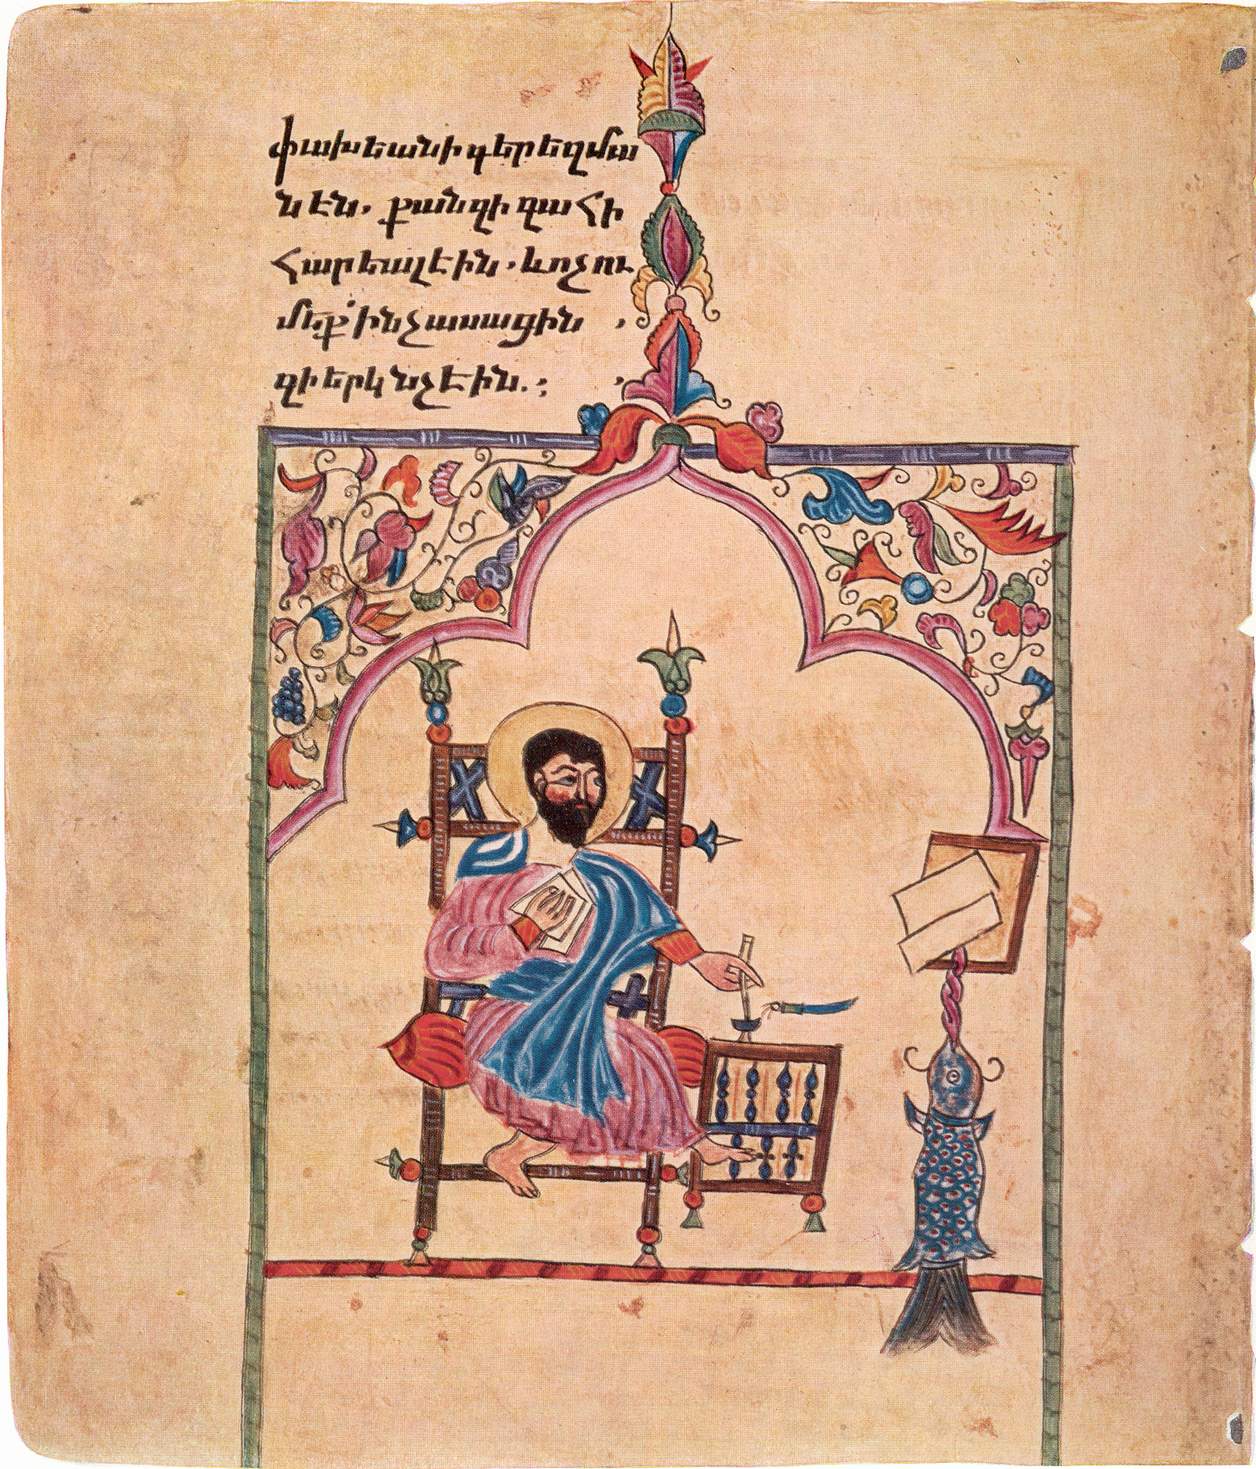 փախեան ի գերեզմա
նէն. քանզի զահի
հարեալ էին. և ոչ ու
մեք ինչ ասացին ,
զի երկնչէին .: